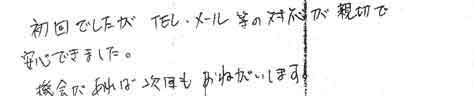 初回でしたが TEL・メール等の対応が親切で
安心できました。
機会があれば次回もおねがいします